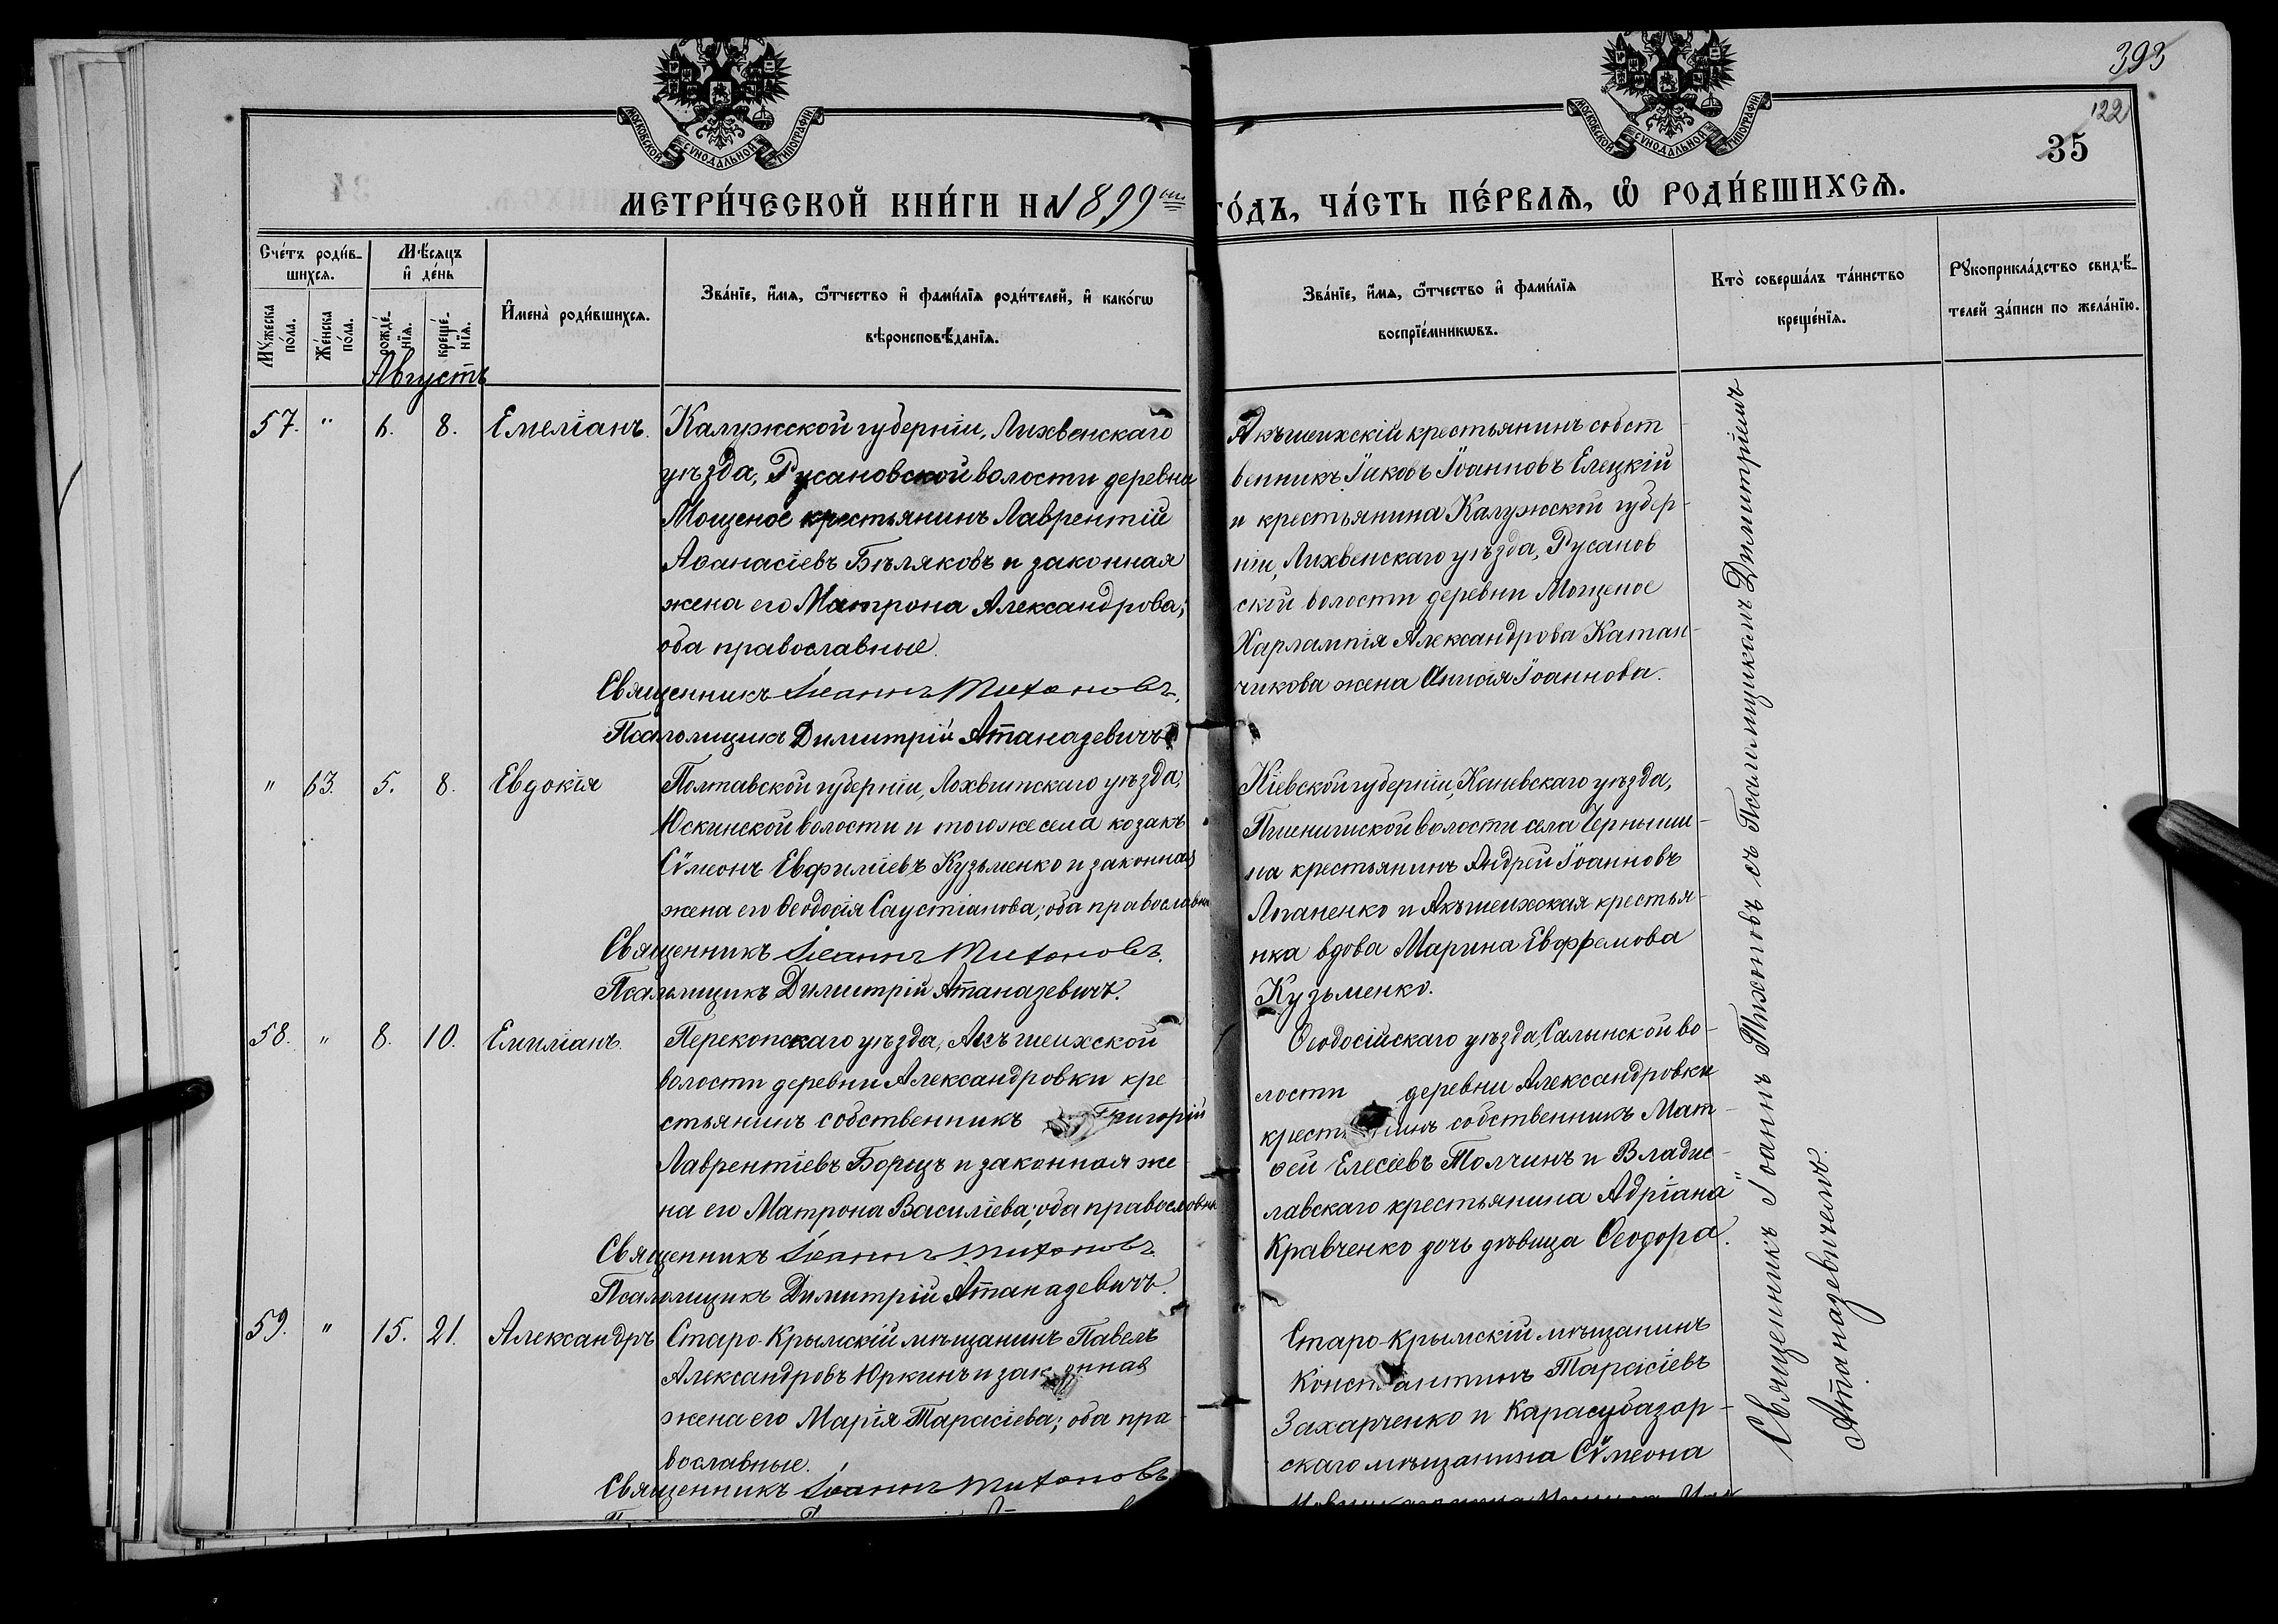 393
122
35
МОСКОВСКОЙ СУНОДАЛЬНОЙ ТИПОГРАФІИ.
МОСКОВСКОЙ СУНОДАЛЬНОЙ ТИПОГРАФІИ.
МЕТРИ́ЧЕСКОЙ КНИ́ГИ НА 1899 ГО́ДЪ, ЧА́СТЬ ПЕ́РВАѦ, Ѽ РОДИ́ВШИХСѦ.
Сче́тъ роди́в-
шихсѧ.
Мꙋ́жеска по́ла.
Же́нска по́ла.
Мѣ́сѧцъ
и҆ де́нь
рожде́-нїѧ.
креще́-нїѧ.
И҆мена̀ роди́вшихсѧ.
Зва́нїе, и҆́мѧ, ѻ҆́тчество и҆ фами́лїѧ роди́телей, и҆ како́гѡ
вѣроисповѣ́данїѧ.
Зва́нїе, и҆́мѧ, ѻ҆́тчество и҆ фами́лїѧ
воспрїе́мникѡвъ.
Кто̀ соверша́лъ та́инство
креще́нїѧ.
Рꙋкоприкла́дство свидѣ́-
телей за́писи по жела́нїю.
Августъ
57. " 6. 8. Емеліанъ.
Калужской губерніи, Лихвенскаго
уѣзда, Русановской волости деревни
Мощеное крестьянинъ Лаврентій
Аѳанасіевъ Бѣляковъ и законная
жена его Матрона Александрова;
оба православные.
Священникъ Іоаннъ Тихоновъ.
Псаломщикъ Димитрій Атаназевичъ
Акъшеихскій крестьянинъ собст
венникъ Іаковъ Іоанновъ Елецкій
и крестьянина Калужской губер-
ніи, Лихвенскаго уѣзда, Русанов
ской волости деревни Мощеное
Харлампія Александрова Катан-
чикова жена Анисія Іоаннова.
" 63. 5. 8. Евдокія
Полтавской губерніи, Лохвитскаго уѣзда,
Юскинской волости и того же села козакъ
Сѵмеонъ Евфиміевъ Кузьменко и законная
жена его Ѳеодосія Саустіанова; оба православны
Священникъ Іоаннъ Тихоновъ.
Псаломщикъ Димитрій Атаназевичъ.
Кіевской губерніи, Каневскаго уѣзда,
Пшеничиской волости села Черныши-
на крестьянинъ Андрей Іоанновъ
Логаненко и Акъшеихская крестья-
нка вдова Марина Евффемова
Кузьменко.
58. " 8. 10. Емиліанъ.
Перекопскаго уѣзда, Акъшеихской
волости деревни Александровки кре
стьянинъ собственникъ Григорій
Лаврентіевъ Борщъ и законная же
на его Матрона Василіева; оба православны
Священникъ Іоаннъ Тихоновъ
Псаломщикъ Димитрій Атаназевичъ.
Ѳеодосійскаго уѣзда, Салынской во-
лости деревни Александровки
крестьянинъ собственникъ Мат-
ѳей Елесіевъ Толчинъ и Владис-
лавскаго крестьянина Адріана
Кравченко дочь дѣвица Ѳеодора.
59. " 15. 21. Александръ
Старо-Крымскій мѣщанинъ Павелъ
Александровъ Юркинъ и законная
жена его Марія Тарасіева; оба пра-
вославные.
Священникъ Іоаннъ Тихоновъ
Старо-Крымскій мѣщанинъ
Константинъ Тарасіевъ
Захарченко и Карасубазар-
скаго мѣщанина Сѵмеона
Священникъ Іоаннъ Тихоновъ съ Псаломщикомъ Димитріемъ
Атаназевичемъ.